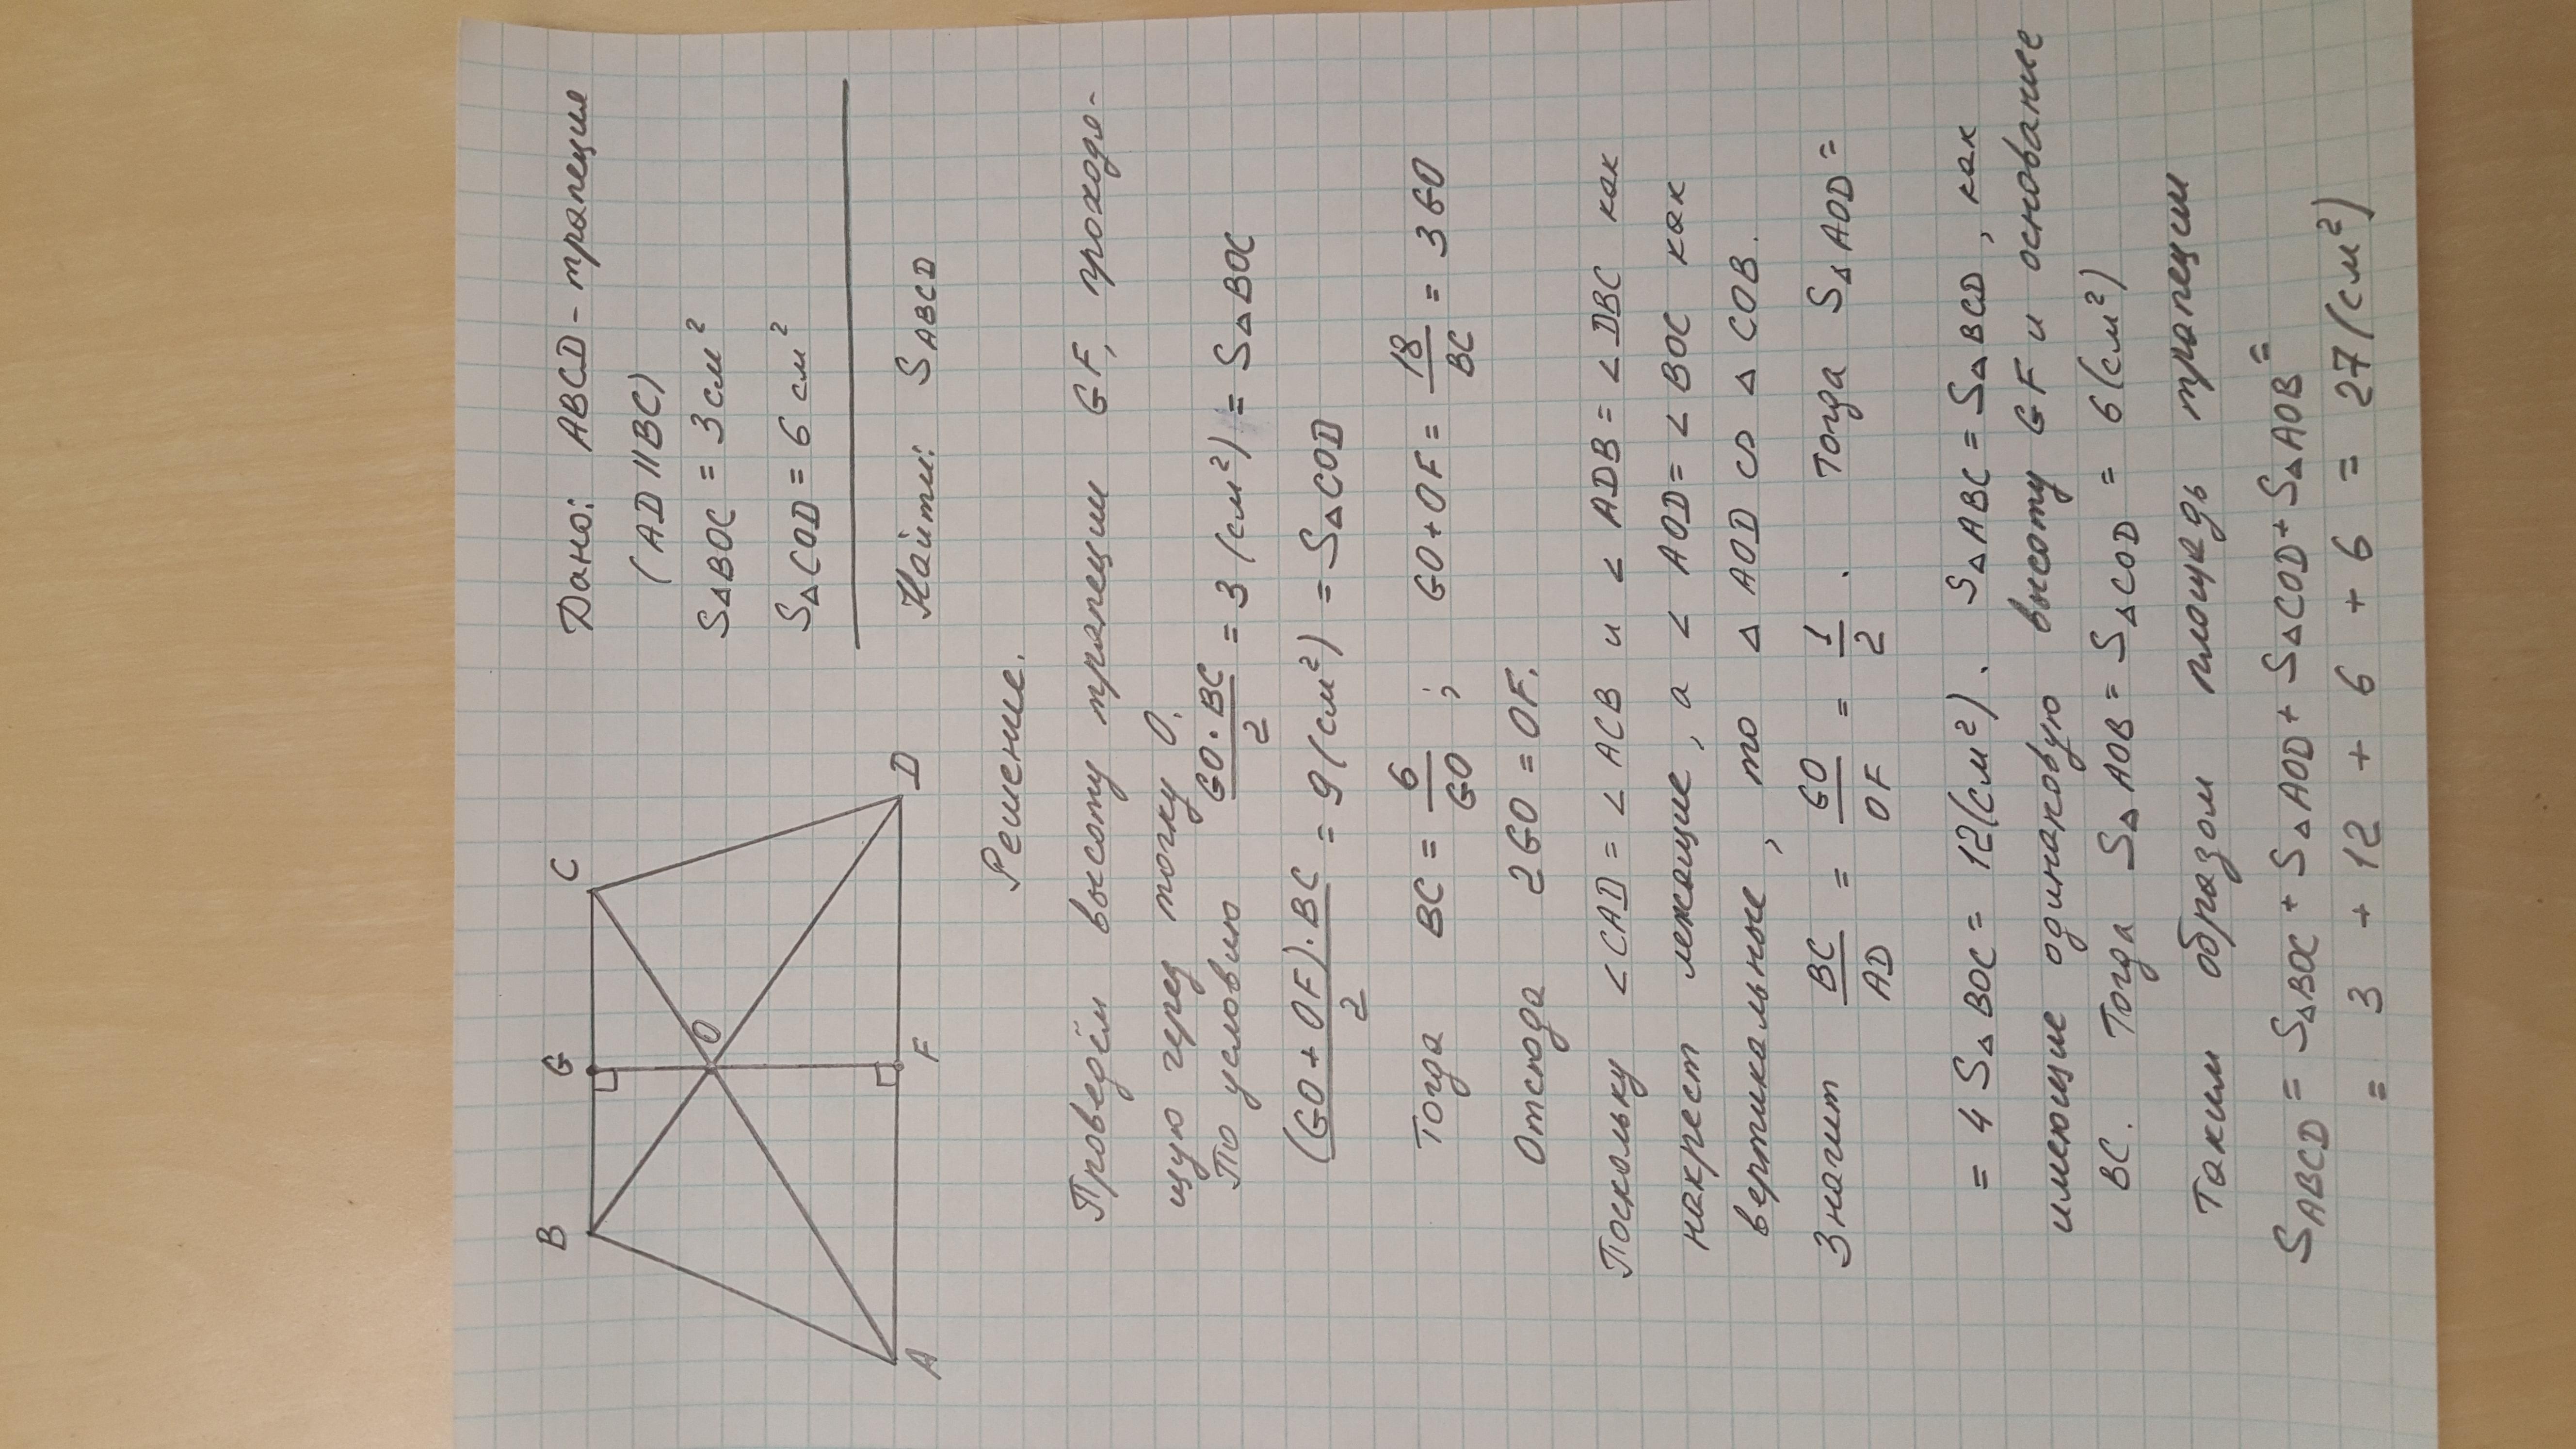 B G C
O
A F D
Дано: ABCD - трапеция
(AD || BC)
S△BOC = 3 см²
S△COD = 6 см²
Найти: S ABCD
Решение.
Проведём высоту трапеции GF, проходя-
щую через точку O.
По условию GO · BC / 2 = 3 (см²) = S△BOC
(GO + OF) · BC / 2 = 9 (см²) = S△COD
Тогда BC = 6 / GO ; GO + OF = 18 / BC = 3 GO
Отсюда 2GO = OF.
Поскольку ∠CAD = ∠ACB и ∠ADB = ∠DBC как
накрест лежащие, а ∠AOD = ∠BOC как
вертикальные, то △AOD ∽ △COB.
Значит BC / AD = GO / OF = 1 / 2 . Тогда S△AOD =
= 4 S△BOC = 12 (см²). S△ABC = S△BCD, как
имеющие одинаковую высоту GF и основание
BC. Тогда S△AOB = S△COD = 6 (см²)
Таким образом площадь трапеции
S ABCD = S△BOC + S△AOD + S△COD + S△AOB =
= 3 + 12 + 6 + 6 = 27 (см²)